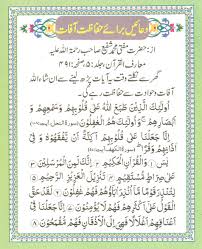 دعائیں برائے حفاظت آفات
از: حضرت مفتی محمد شفیع صاحب رحمۃ اللہ علیہ
معارف القرآن، جلد: ۵، صفحہ: ۴۹۱
گھر سے نکلتے وقت یہ آیات پڑھ لینے سے ان شاء اللہ
آفات وحوادث سے حفاظت رہے گی۔
اُولٰٓئِكَ الَّذِيْنَ طَبَعَ اللّٰهُ عَلٰى قُلُوْبِهِمْ وَسَمْعِهِمْ وَ
اَبْصَارِهِمْ وَاُولٰٓئِكَ هُمُ الْغٰفِلُوْنَ
اِنَّا جَعَلْنَا عَلٰى قُلُوْبِهِمْ اَكِنَّةً اَنْ يَّفْقَهُوْهُ وَفِيْٓ
يٰسٓ وَالْقُرْاٰنِ الْحَكِيْمِ اِنَّكَ لَمِنَ الْمُرْسَلِيْنَ
عَلٰى صِرَاطٍ مُّسْتَقِيْمٍ تَنْزِيْلَ الْعَزِيْزِ الرَّحِيْمِ
لِتُنْذِرَ قَوْمًا مَّآ اُنْذِرَ اٰبَآؤُهُمْ فَهُمْ غٰفِلُوْنَ لَقَدْ حَقَّ
الْقَوْلُ عَلٰٓى اَكْثَرِهِمْ فَهُمْ لَا يُؤْمِنُوْنَ اِنَّا جَعَلْنَا فِيْٓ
اَعْنَاقِهِمْ اَغْلٰلًا فَهِيَ اِلَى الْاَذْقَانِ فَهُمْ مُّقْمَحُوْنَ